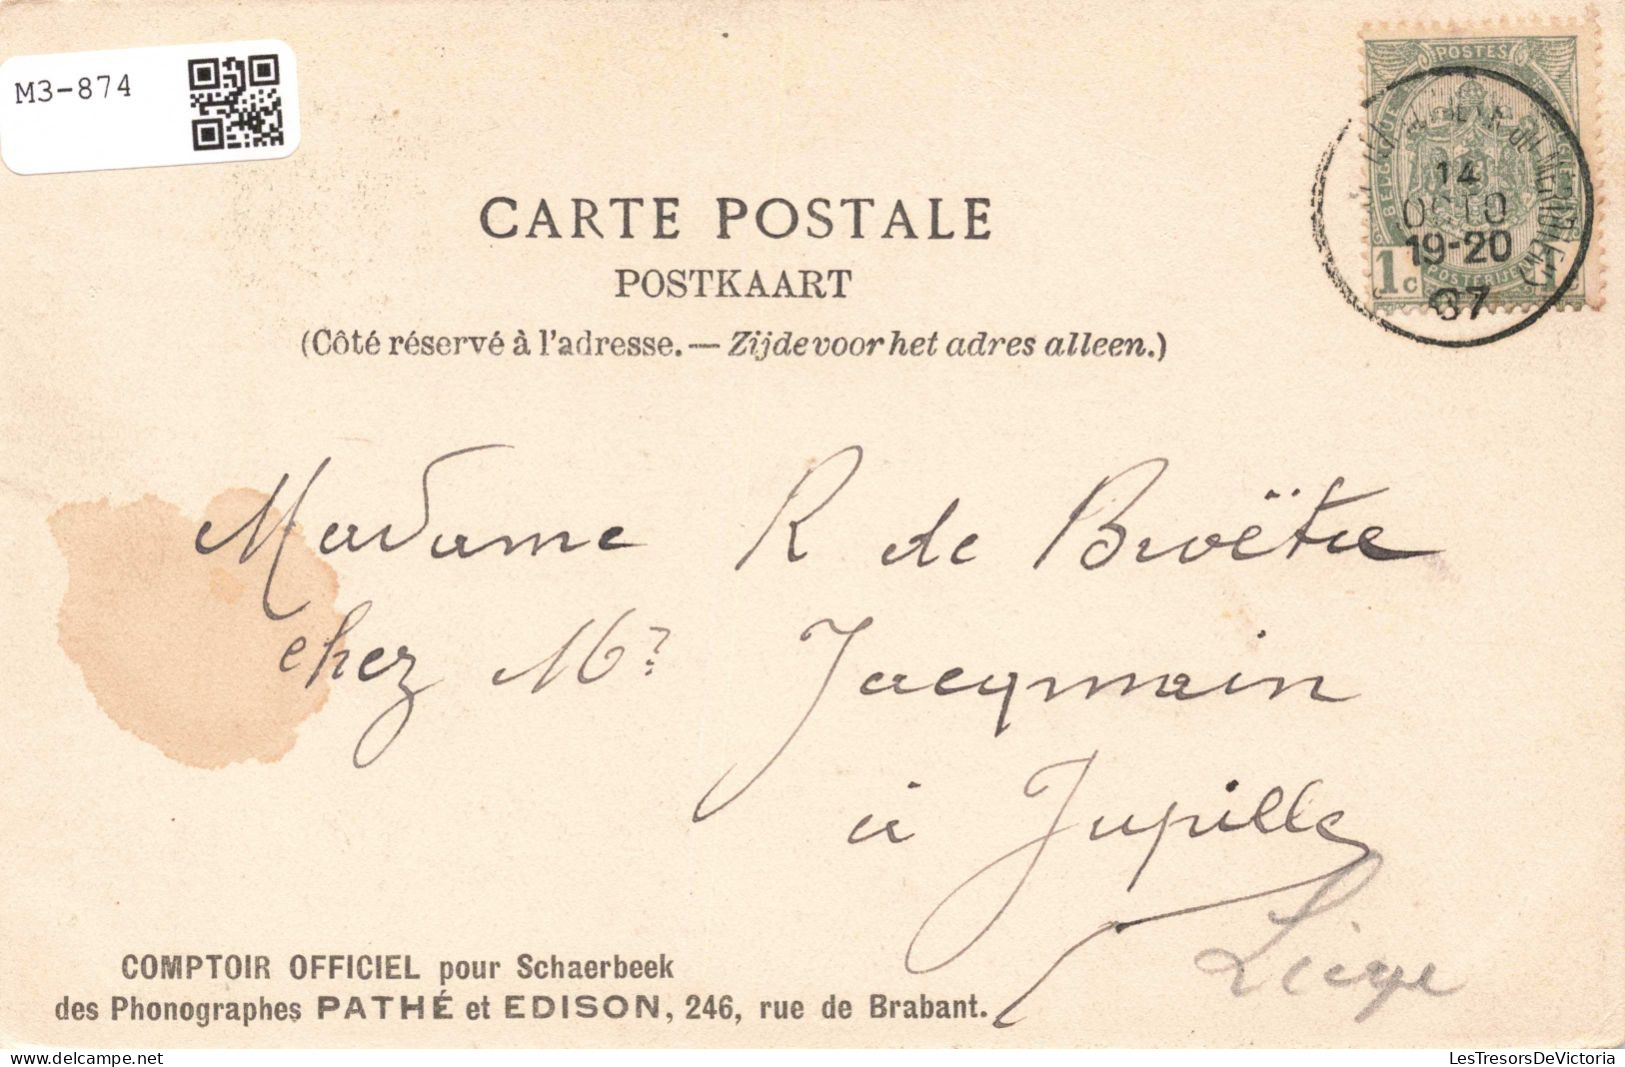 M3-874
POSTES
BELGIQUE
14
OCTO
19-20
07
1c
CARTE POSTALE
POSTKAART
(Côté réservé à l'adresse.— Zijde voor het adres alleen.)
Madame R de Broëtre
chez Mr Jacqmain
à Jupille
Liége
COMPTOIR OFFICIEL pour Schaerbeek
des Phonographes PATHÉ et EDISON, 246, rue de Brabant.
LesTresorsDeVictoria